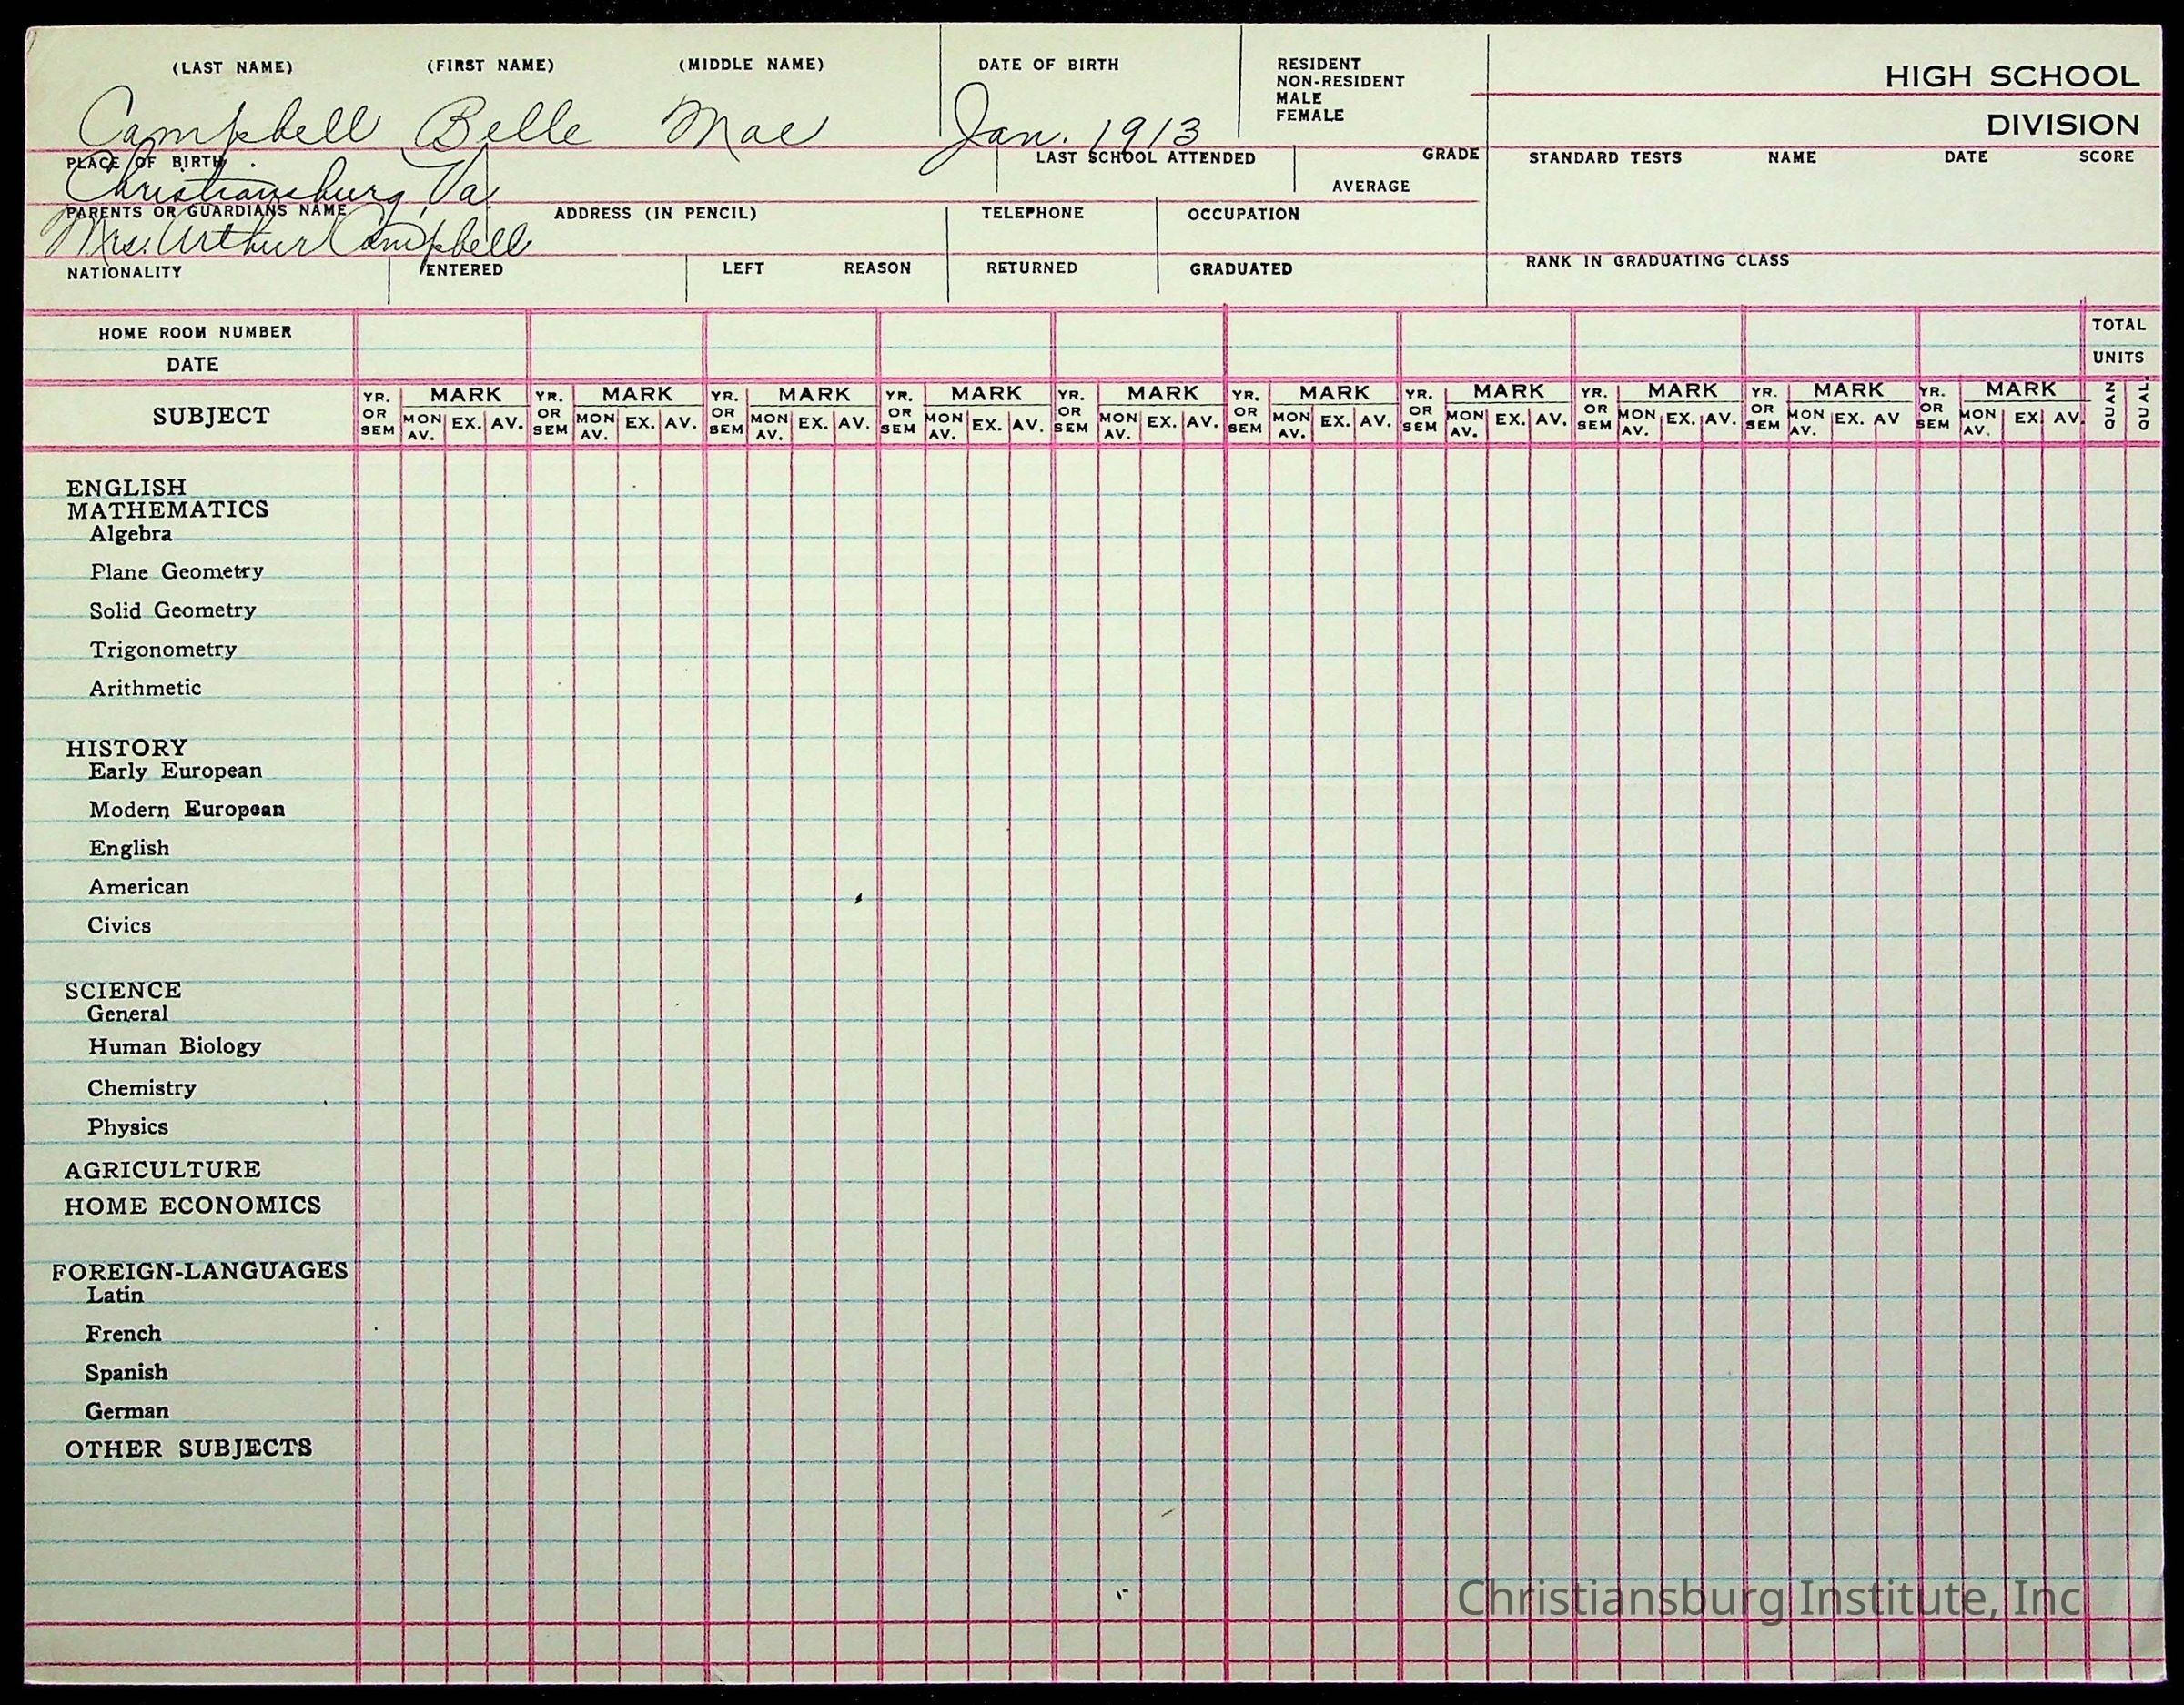 (LAST NAME) (FIRST NAME) (MIDDLE NAME) DATE OF BIRTH RESIDENT
NON-RESIDENT
MALE
FEMALE
HIGH SCHOOL
DIVISION
Campbell Belle Mae Jan. 1913
PLACE OF BIRTH LAST SCHOOL ATTENDED GRADE STANDARD TESTS NAME DATE SCORE
Christiansburg, Va. AVERAGE
PARENTS OR GUARDIANS NAME ADDRESS (IN PENCIL) TELEPHONE OCCUPATION
Mrs. Arthur Campbell
RANK IN GRADUATING CLASS
NATIONALITY ENTERED LEFT REASON RETURNED GRADUATED
HOME ROOM NUMBER TOTAL
DATE UNITS
SUBJECT YR. OR SEM MARK MON AV. EX. AV. YR. OR SEM MARK MON AV. EX. AV. YR. OR SEM MARK MON AV. EX. AV. YR. OR SEM MARK MON AV. EX. AV. YR. OR SEM MARK MON AV. EX. AV. YR. OR SEM MARK MON AV. EX. AV. YR. OR SEM MARK MON AV. EX. AV. YR. OR SEM MARK MON AV. EX. AV. YR. OR SEM MARK MON AV. EX. AV YR. OR SEM MARK MON AV. EX AV. QUAN QUAL.
ENGLISH
MATHEMATICS
Algebra
Plane Geometry
Solid Geometry
Trigonometry
Arithmetic
HISTORY
Early European
Modern European
English
American
Civics
SCIENCE
General
Human Biology
Chemistry
Physics
AGRICULTURE
HOME ECONOMICS
FOREIGN-LANGUAGES
Latin
French
Spanish
German
OTHER SUBJECTS
Christiansburg Institute, Inc